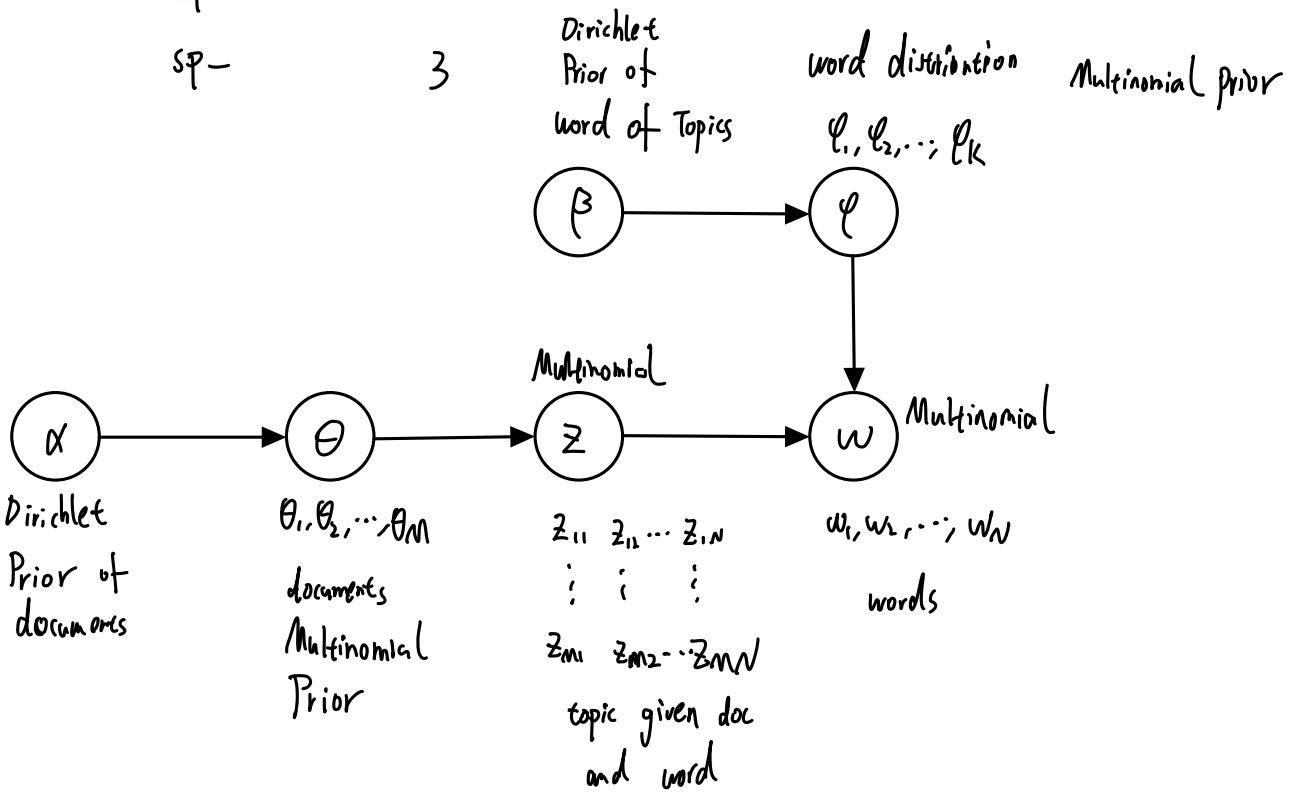 sp- 3
Dirichlet
Prior of
word of Topics
word distribution
φ₁, φ₂, ..., φK
Multinomial prior
β
φ
Multinomial
α
θ
z
w
Multinomial
Dirichlet
Prior of
documents
θ₁, θ₂, ..., θM
documents
Multinomial
Prior
z₁₁ z₁₂ ... z₁N
⋮ ⋮ ⋮
zM1 zM2 ... zMN
topic given doc
and word
w₁, w₂, ..., wN
words